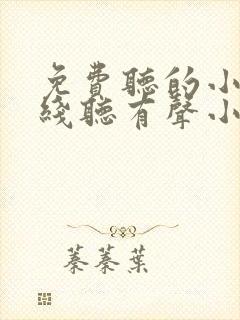 免費聽的小
綫聽有聲小
蓁蓁葉